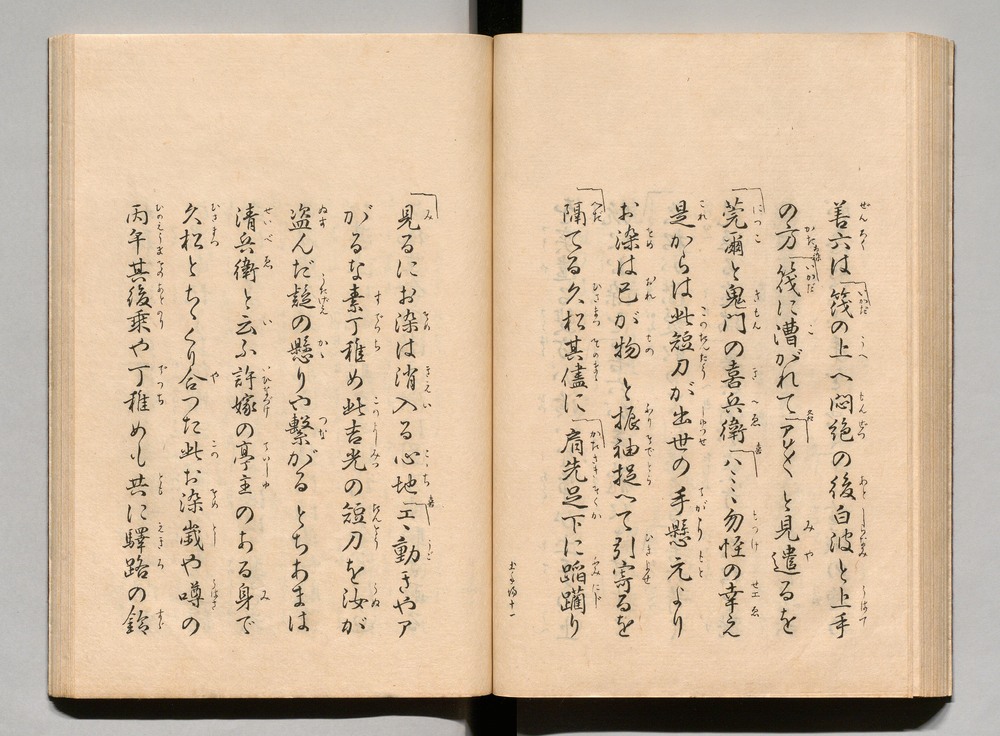 善六は筏の上へ悶絶の後白波と上手
の方筏に漕がれてアレ〳〵と見遣るを
莞爾と鬼門の喜兵衛ハヽヽヽ勿怪の幸え
是からは此短刀が出世の手懸元より
お染は己が物と振袖捉へて引寄るを
隔てる久松其儘に肩先足下に蹈躙り
見るにお染は消入る心地エヽ動きやア
がるな素丁稚め此吉光の短刀を汝が
盗んだ疑の懸りや繋がるとちあまは
清兵衛と云ふ許嫁の亭主のある身で
久松とちゝくり合つた此お染歳や噂の
丙午其後乗や丁稚めも共に驛路の鈴